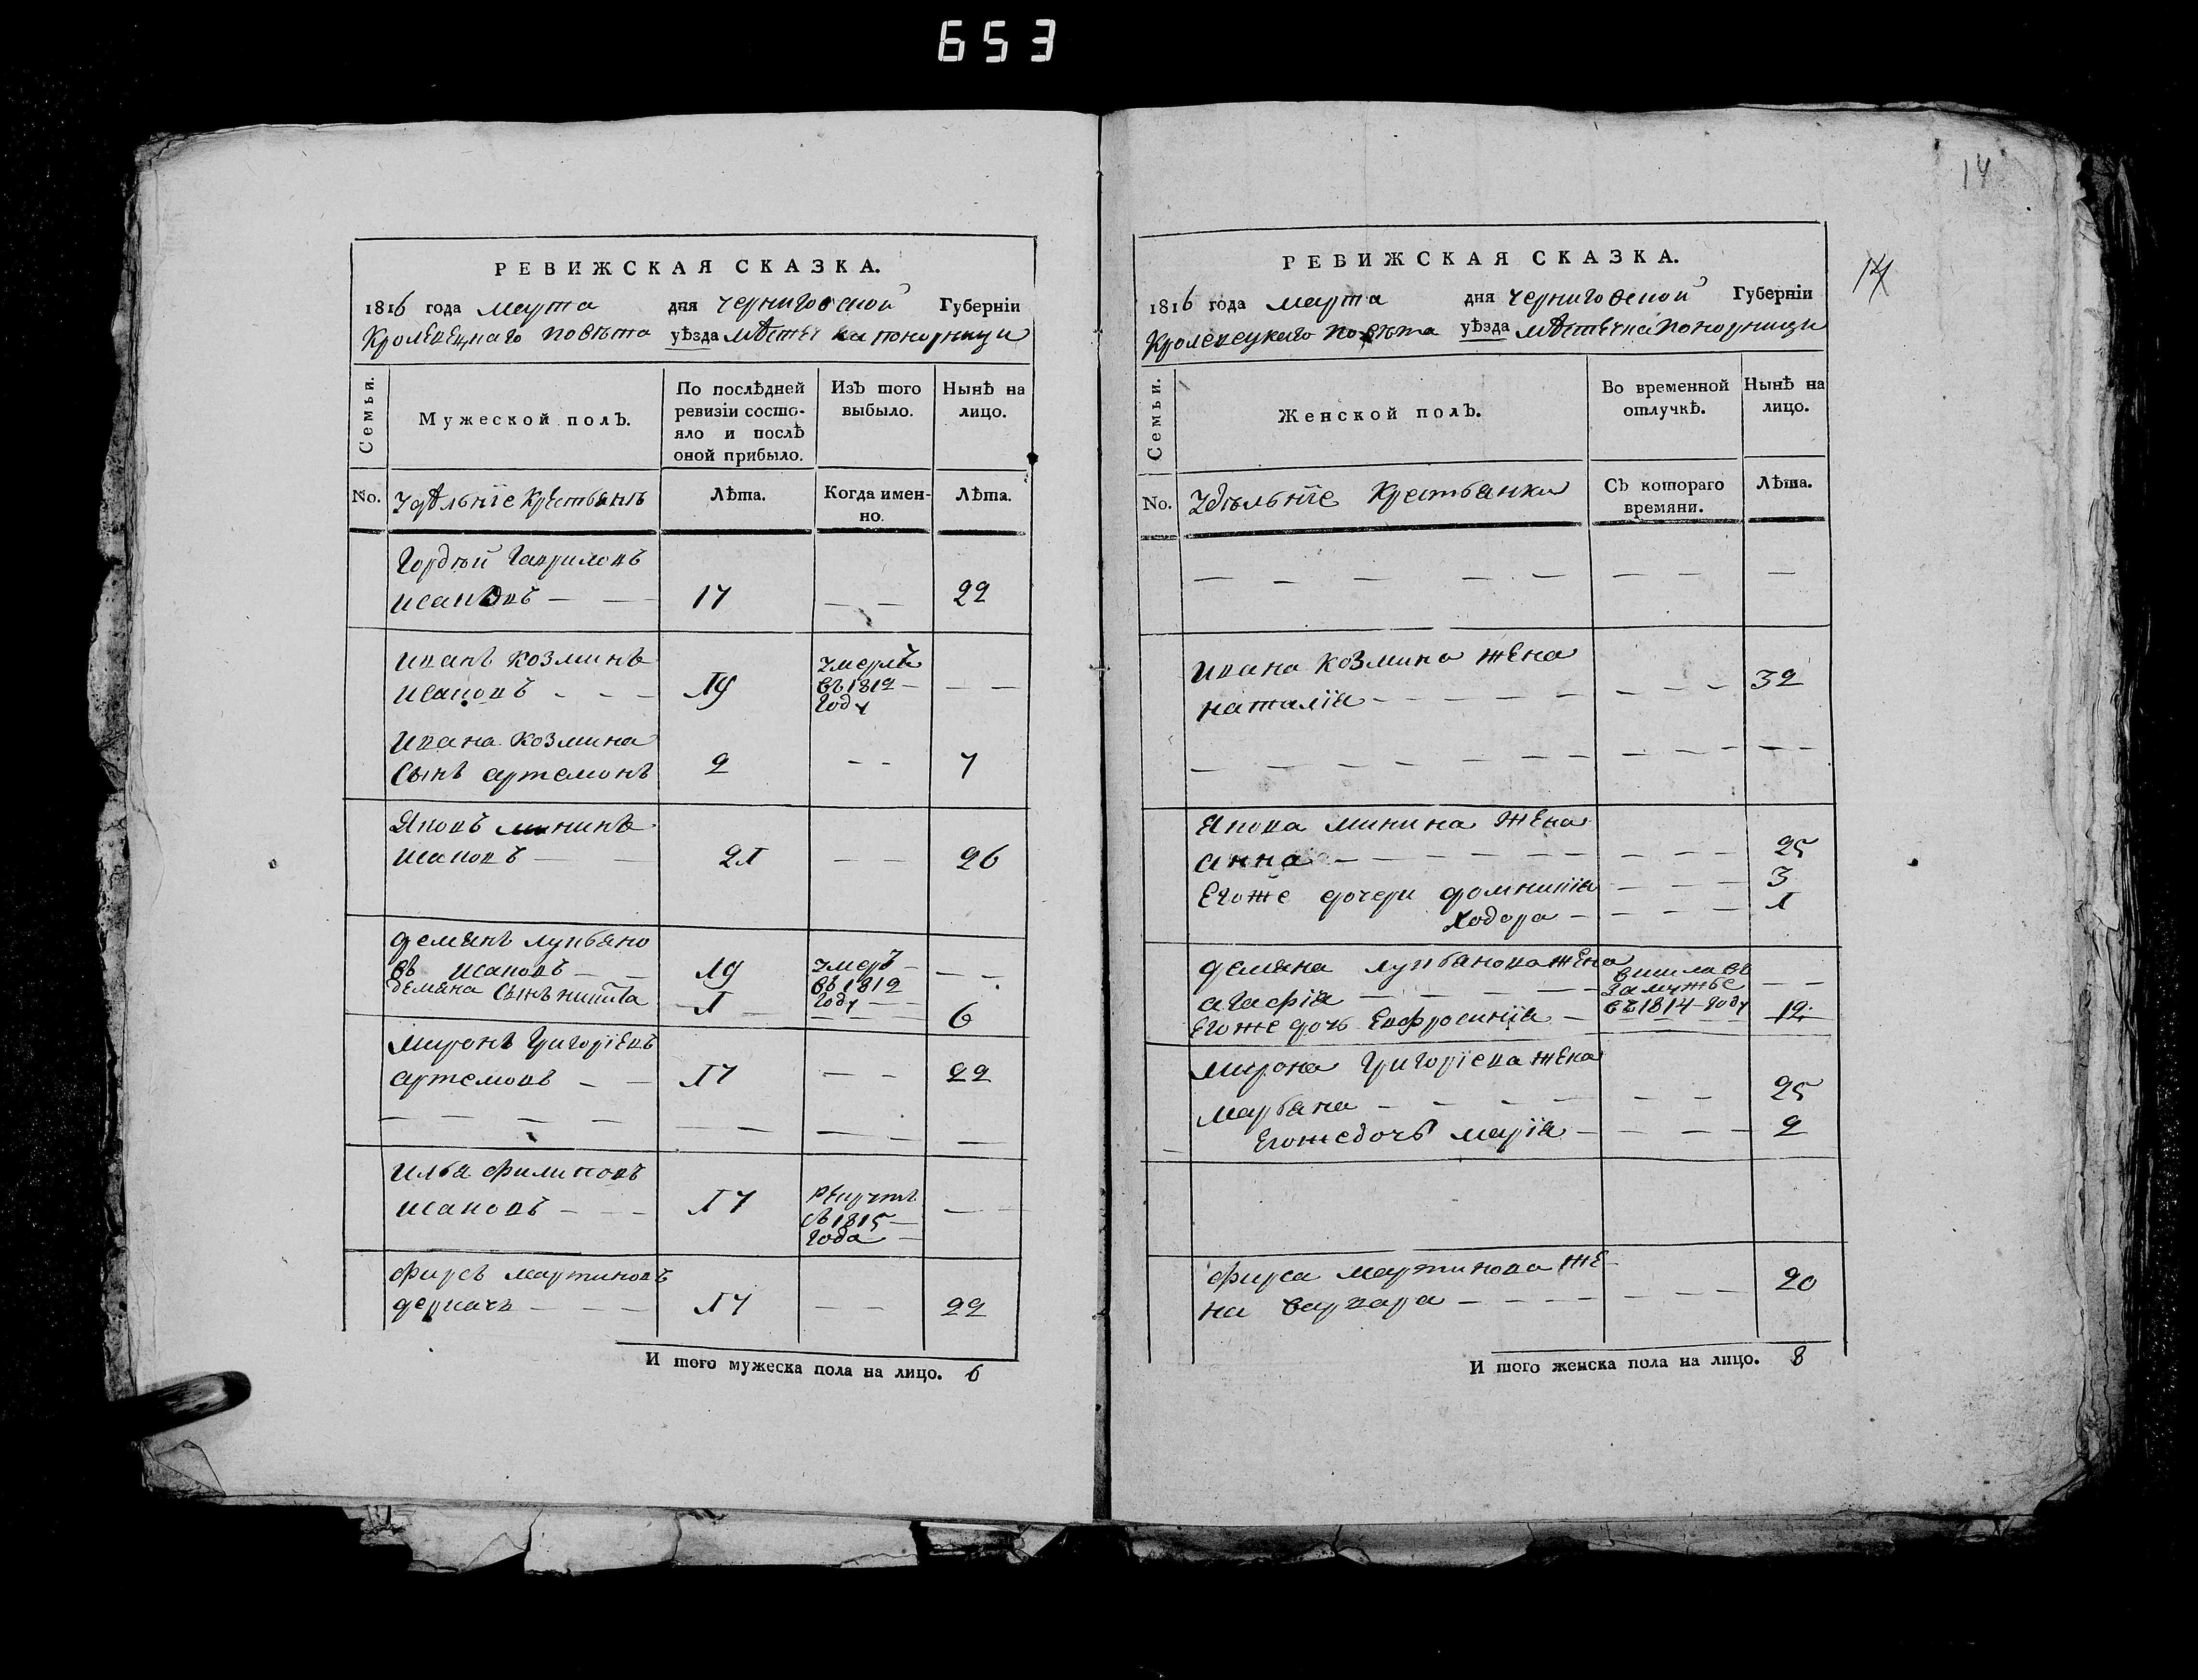 653
14
РЕВИЖСКАЯ СКАЗКА.
1816 года марта дня черниговской Губерніи
Кролевецкаго повѣта уѣзда мѣстечка понорници
Семьи.
Мужеской полъ.
По послѣдней
ревизіи состо-
яло и послѣ
оной прибыло.
Изъ того
выбыло.
Нынѣ на
лицо.
No. удѣльніе крестьянѣ
Лѣта.
Когда имен-
но.
Лѣта.
Гордѣй Гавриловъ
исаковъ — — 17 — — 22
иванъ козминъ
исаковъ - - — 19 умеръ — —
въ 1812 —
Году
ивана козмина
сынъ артемонъ 2 - - 7
Яковъ мининъ
исаковъ — — 21 — — 26
демянъ лукьяно
въ исаковъ — — 19 умеръ — — —
въ 1812
Году — —
демяна сынъ никита 1 — 6
миронъ григоріевъ
артемовъ — — 17 — — 22
— — — — — — — — —
илья филиповъ
исаковъ — - — 17 рекрутъ — —
съ 1815 —
Года —
фирсъ мартиновъ
деркачъ — — — 17 — — 22
И того мужеска пола на лицо. 6
14
РЕВИЖСКАЯ СКАЗКА.
1816 года марта дня черниговской Губерніи
Кролевецкаго повѣта уѣзда мѣстечка понорници
Семьи.
Женской полъ.
Во временной
отлучкѣ.
Нынѣ на
лицо.
No. удѣльніе крестьянки
Съ котораго
времяни.
Лѣта.
— — — — — — — —
ивана козмина жена
наталія - — — — — - — - 32
— — — — — — — — — — —
якова минина жена
анна — — — — — — — — — 25
егоже дочери домникія — — — 3
ходора — — — — 1
демяна лукьянова жена
агафія — — — — вишла въ — —
замужье
въ 1814 году
егоже дочь евфросинія — 12
мирона григоріева жена
марьяна — — — — — — 25
егоже дочь марія — — — — 2
фирса мартинова же-
на варвара — — — — — — — 20
И того женска пола на лицо. 8